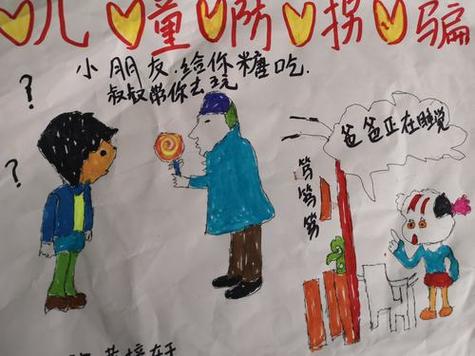 儿童防拐骗
小朋友.给你糖吃.
叔叔带你去玩
?
?
笃笃笃
爸爸正在睡觉